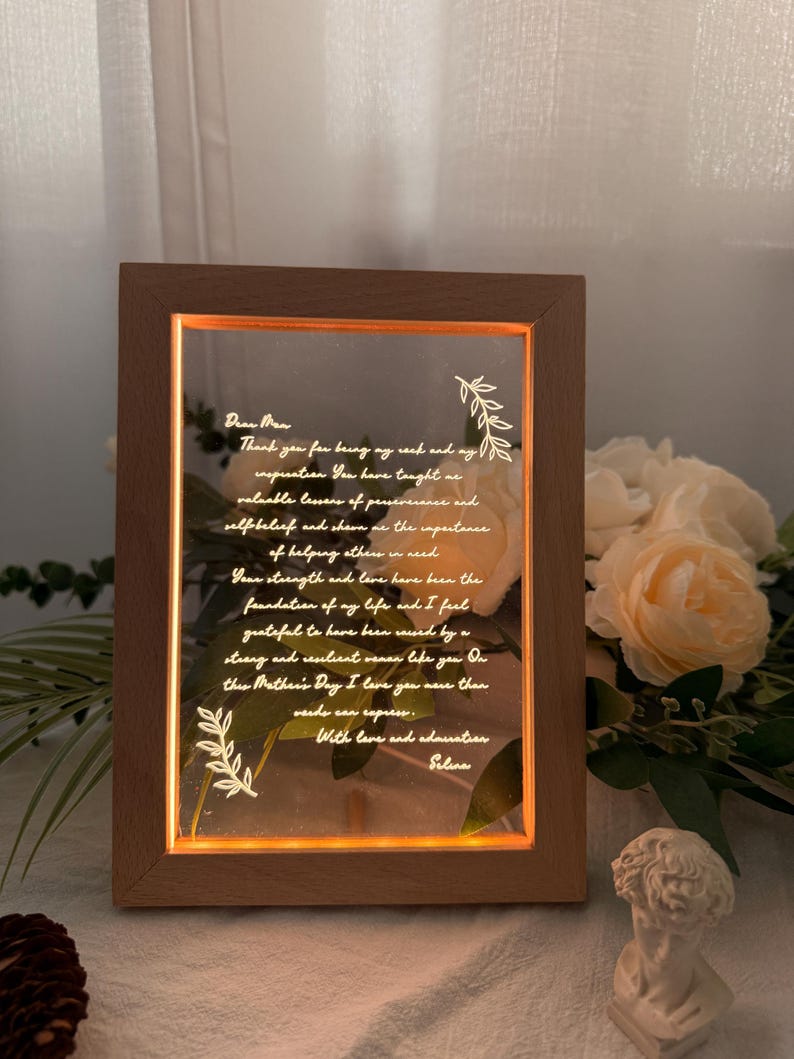 Dear Mom
Thank you for being my rock and my
inspiration You have taught me
valuable lessons of perseverance and
self-belief and shown me the importance
of helping others in need
Your strength and love have been the
foundation of my life and I feel
grateful to have been raised by a
strong and resilient woman like you On
this Mother's Day I love you more than
words can express.
With love and admiration
Selina